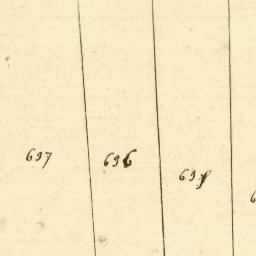 697 696 695
6